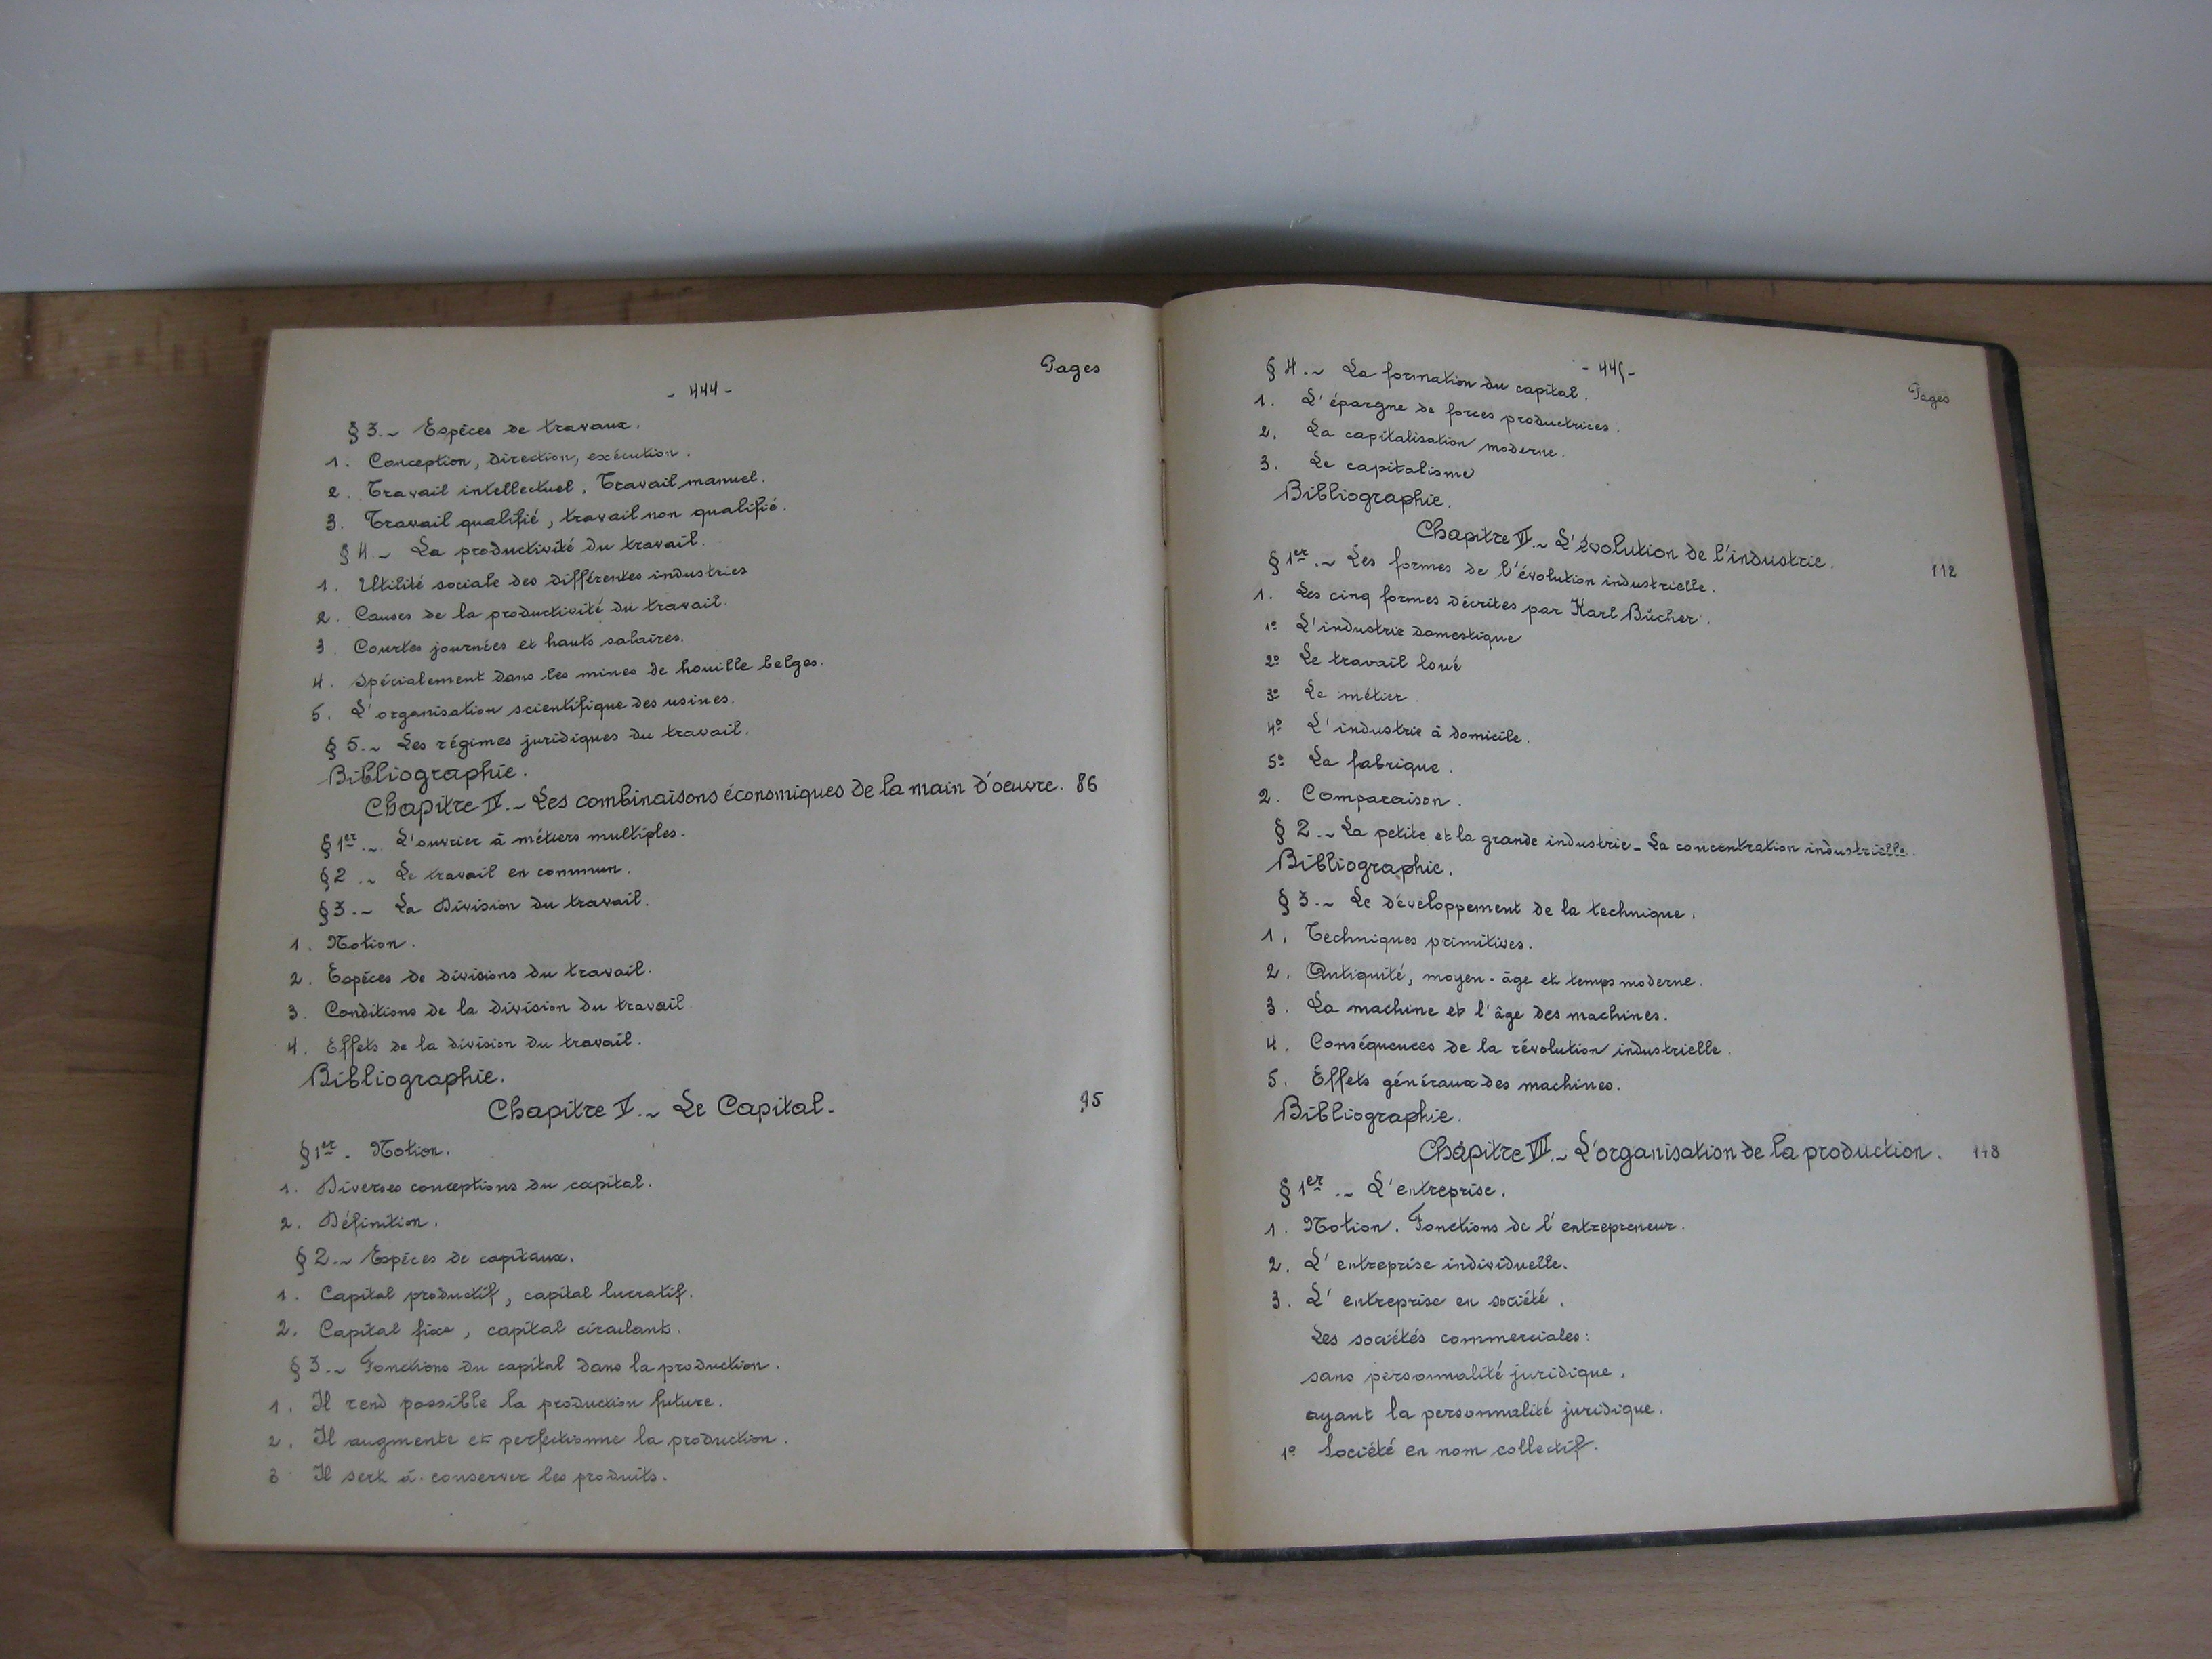 - 444 -
Pages
§ 3.~ Espèces de travaux.
1. Conception, direction, exécution.
2. Travail intellectuel, Travail manuel.
3. Travail qualifié, travail non qualifié.
§ 4~ La productivité du travail.
1. Utilité sociale des différentes industries
2. Causes de la productivité du travail.
3. Courtes journées et hauts salaires.
4. Spécialement dans les mines de houille belges.
5. L'organisation scientifique des usines.
§ 5.~ Les régimes juridiques du travail.
Bibliographie.
Chapitre IV.~ Les combinaisons économiques de la main d'oeuvre. 86
§ 1er.~ L'ouvrier à métiers multiples.
§ 2.~ Le travail en commun.
§ 3.~ La Division du travail.
1. Notion.
2. Espèces de divisions du travail.
3. Conditions de la division du travail
4. Effets de la division du travail.
Bibliographie.
Chapitre V.~ Le Capital. 95
§ 1er. Notion.
1. Diverses conceptions du capital.
2. Définition.
§ 2.~ Espèces de capitaux.
1. Capital productif, capital lucratif.
2. Capital fixe, capital circulant.
§ 3.~ Fonctions du capital dans la production.
1. Il rend possible la production future.
2. Il augmente et perfectionne la production.
3 Il sert à conserver les produits.
- 445 -
Pages
§ 4.~ La formation du capital.
1. L'épargne de forces productrices.
2. La capitalisation moderne.
3. Le capitalisme
Bibliographie.
Chapitre VI.~ L'évolution de l'industrie. 112
§ 1er.~ Les formes de l'évolution industrielle.
1. Les cinq formes décrites par Karl Bücher.
1º L'industrie domestique
2º Le travail loué
3º Le métier
4º L'industrie à domicile.
5º La fabrique.
2. Comparaison.
§ 2.~ La petite et la grande industrie - La concentration industrielle.
Bibliographie.
§ 3.~ Le développement de la technique.
1. Techniques primitives.
2. Antiquité, moyen-âge et temps moderne.
3. La machine et l'âge des machines.
4. Conséquences de la révolution industrielle.
5. Effets généraux des machines.
Bibliographie.
Chapitre VII.~ L'organisation de la production. 148
§ 1er.~ L'entreprise.
1. Notion. Fonctions de l'entrepreneur.
2. L'entreprise individuelle.
3. L'entreprise en société.
Les sociétés commerciales:
sans personnalité juridique,
ayant la personnalité juridique.
1º Société en nom collectif.